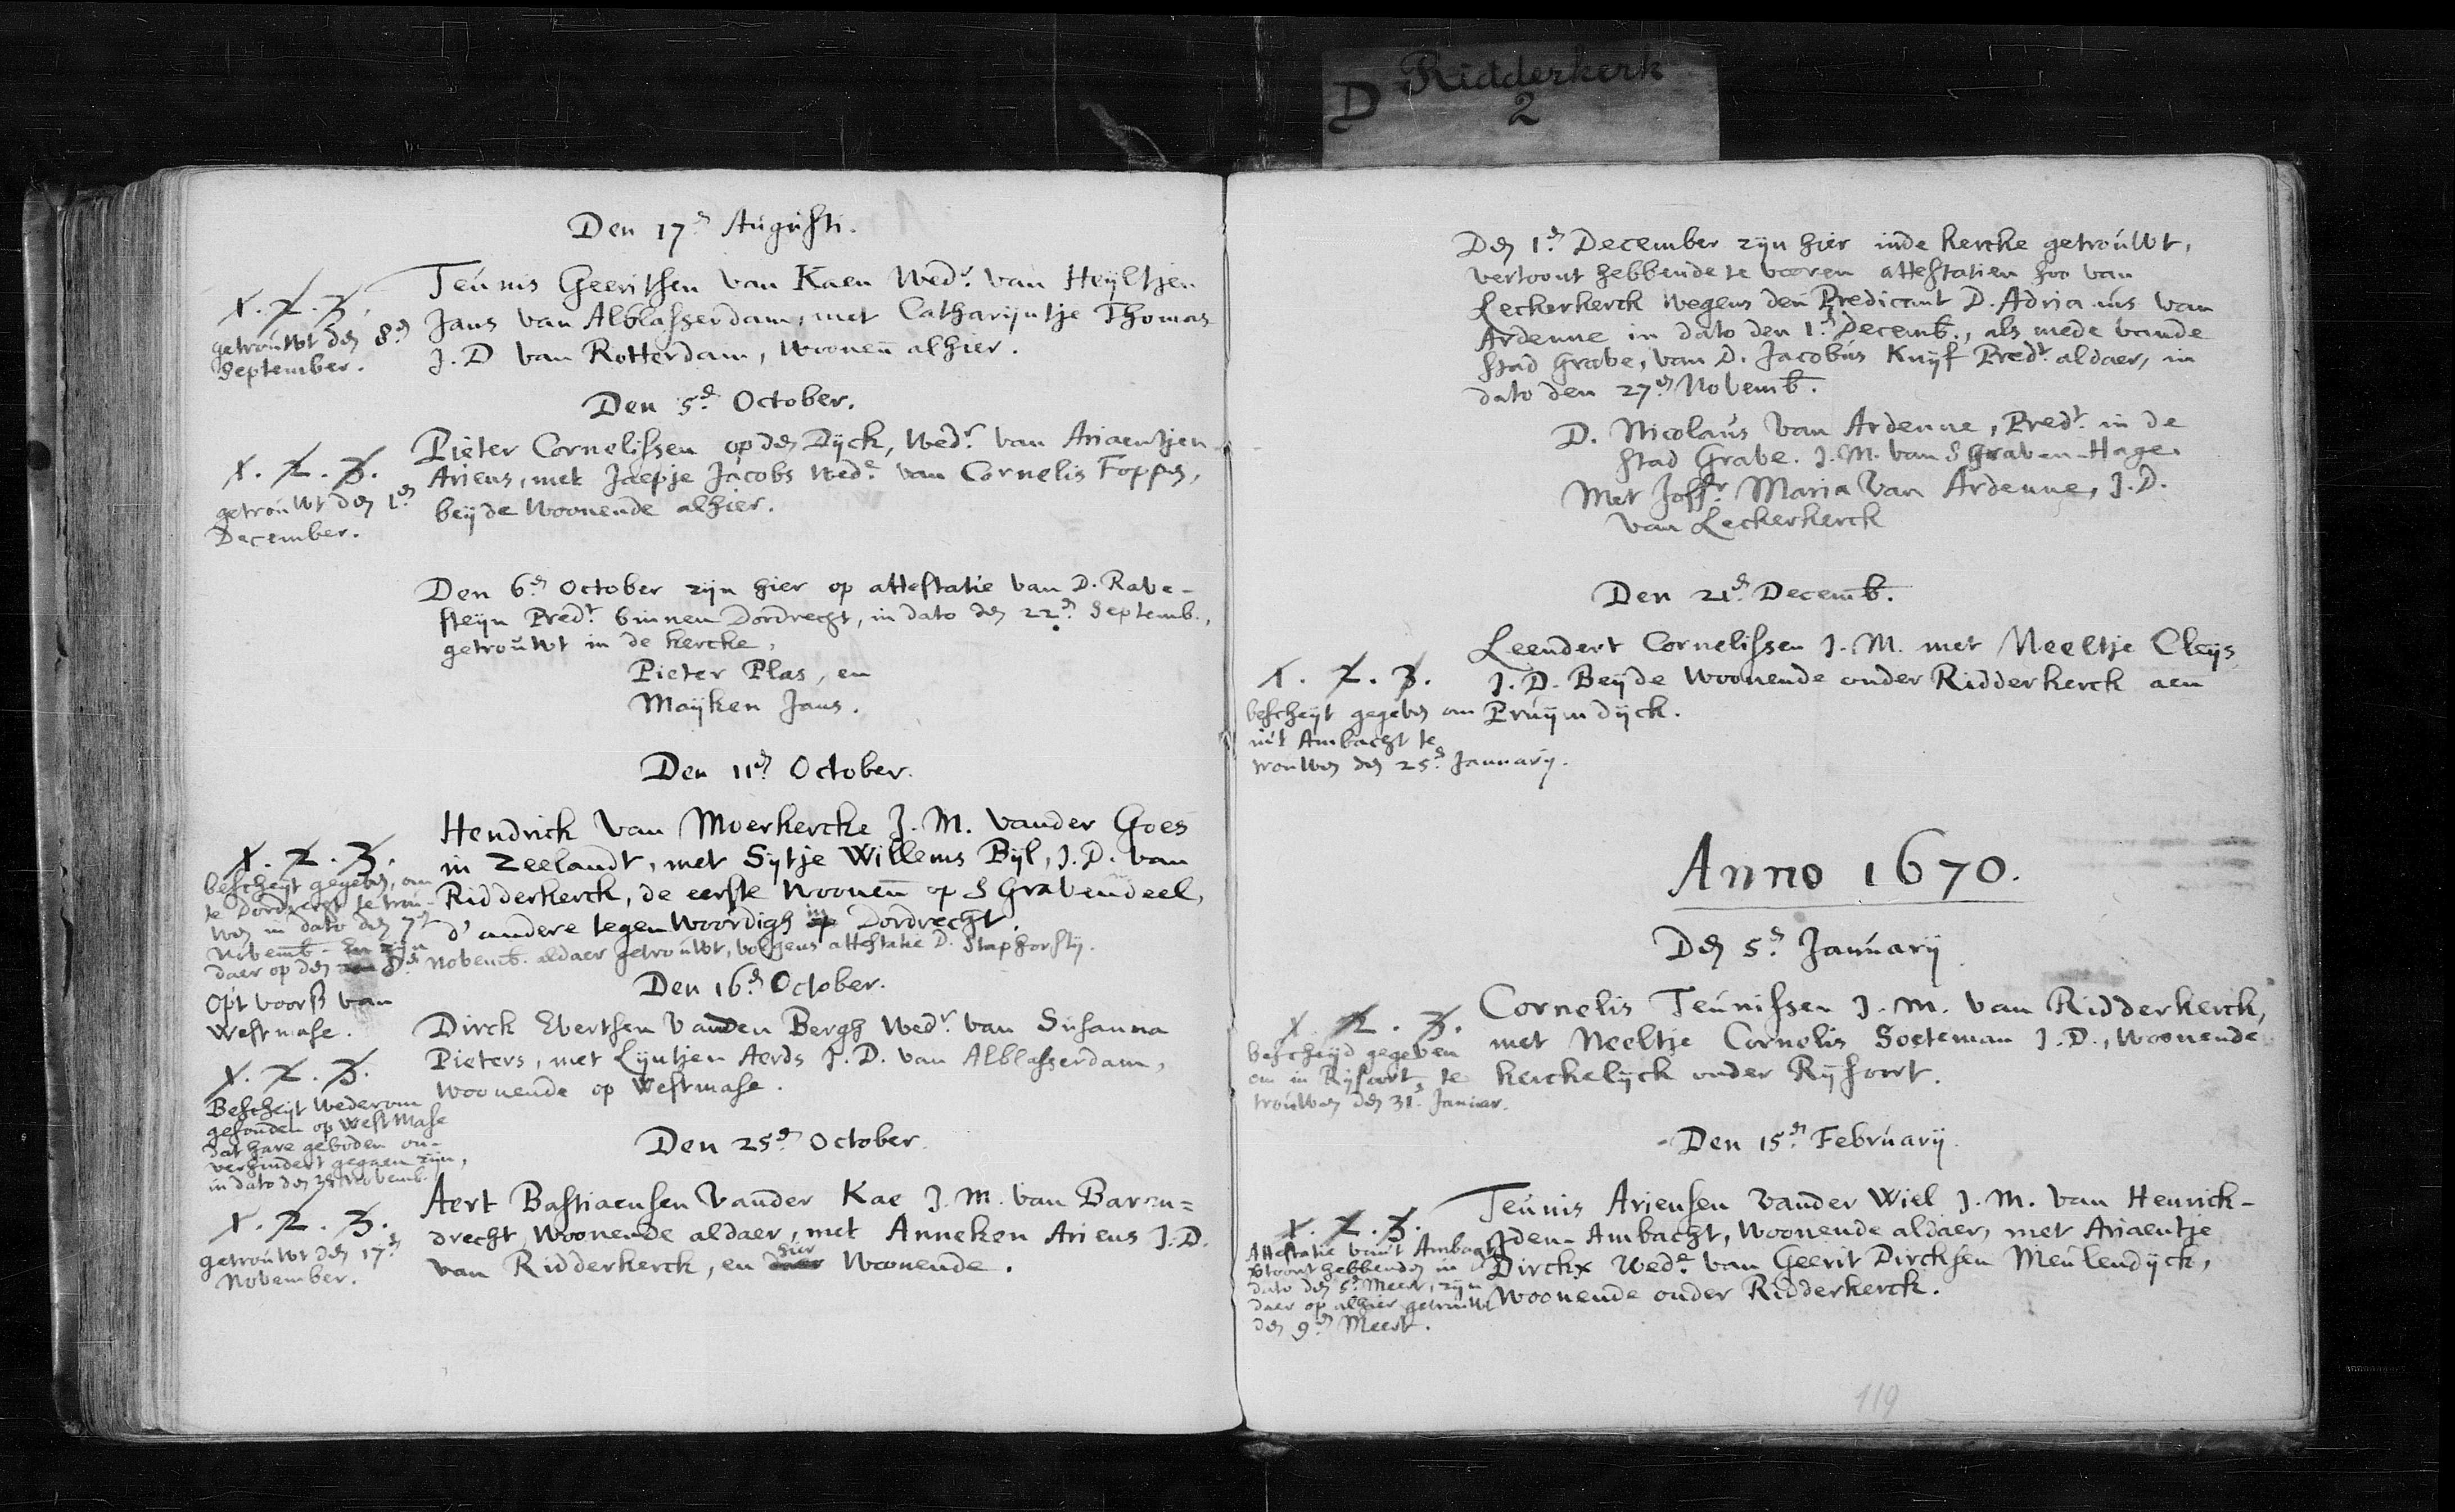 D Ridderkerk
2
Den 17.en Augusti.
1. 2. 3.
getrouwt den 8.en
September.
Teunis Geeritsen van Kaen Wedr. van Heijltjen
Jans van Alblasserdam, met Catharijntje Thomas
J. D van Rotterdam, woonen alhier.
Den 5.en October.
1. 2. 3.
getrouwt den 1.en
December.
Pieter Cornelissen op den Dijck, Wedr. van Ariaentjen
Ariens, met Jaepje Jacobs Wede. van Cornelis Foppen,
beijde woonende alhier.
Den 6.en October zijn hier op attestatie van D. Rave-
steijn Predt. binnen Dordrecht, in dato den 22.en Septemb.,
getrouwt in de kercke,
Pieter Plas, en
Maijken Jans.
Den 11.en October.
1. 2. 3.
bescheijt gegeven, om
te Dordrecht te trou-
wen in dato den 7.en
Novemb. En zijn
daer op den 8.en Novemb. aldaer getrouwt, volgens attestatie D. Staphorstij.
Hendrick van Moerkercke J. M. vander Goes
in Zeelandt, met Sijtje Willems Bijl, J. D. van
Ridderkerck, de eerste woonen op S Gravendeel,
d' andere tegenwoordigh in op Dordrecht.
Den 16.en October.
Opt voors van
Westmase.
1. 2. 3.
Bescheijt wederom
gesonden op WestMase
dat hare geboden on-
verhindert gegaen zijn,
in dato den Novemb.
Dirck Evertsen vanden Bergh Wedr. van Susanna
Pieters, met Lijntjen Aerds J. D. van Alblasserdam,
woonende op Westmase.
Den 25.en October
1. 2. 3.
getrouwt den 17.en
November.
Aert Bastiaensen vander Kae J. M. van Baren=
drecht woonende aldaer, met Anneken Ariens J. D.
van Ridderkerck, en hier daer woonende.
Den 1.en December zijn hier inde kercke getrouwt,
vertoont hebbende te voeren attestatien soo van
Leckerkerck wegens den Predicant D. Adrianus van
Ardenne in dato den 1.en Decemb., als mede vande
stad Grave, van D. Jacobus Knijf Predt. aldaer, in
dato den 27.en Novemb.
D. Nicolaus van Ardenne, Predt. in de
stad Grave. J. M. van S Graven-Hage.
Met Joffr. Maria van Ardenne, J. D.
van Leckerkerck
Den 21.en Decemb.
1. 2. 3.
bescheijt gegeven om
int Ambacht te
trouwen den 25.en Januarij.
Leendert Cornelissen J. M. met Neeltje Cleijs
J. D. Beijde woonende onder Ridderkerck aen
Pruijmdijck.
Anno 1670.
Den 5.en Januarij
1. 2. 3.
bescheijd gegeven
om in Rijsoort, te
trouwen den 31. Januar.
Cornelis Teunissen J. M. van Ridderkerck,
met Neeltje Cornelis Soeteman J. D., woonende
kerckelijck onder Rijsoort.
Den 15.en Februarij.
1. 2. 3.
Attestatie van't Ambacht
vertoont hebbenden in
dato den 5.en Meert, zijn
daer op alhier getrouwt
den 9.en Meert.
Teunis Ariensen vander Wiel J. M. van Henrick-
Iden-Ambacht, woonende aldaer, met Ariaentje
Dirckx Wede. van Geerit Dircksen Meulendijck,
woonende onder Ridderkerck.
119